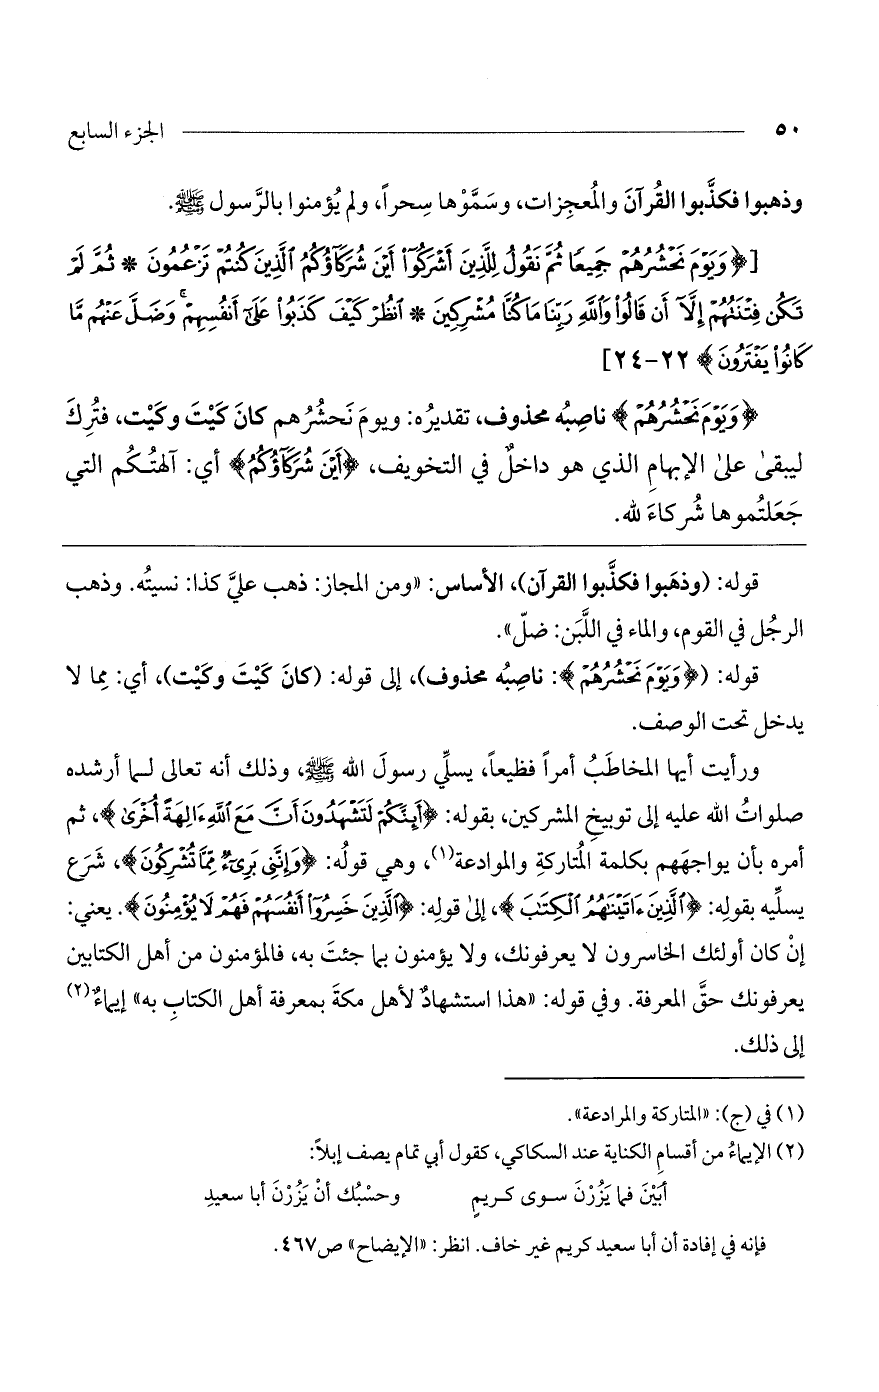 ٥٠ الجزء السابع
وذهبوا فكذَّبوا القُرآنَ والمُعجِزات، وسَمَّوْها سِحراً، ولم يُؤمنوا بالرَّسول ﷺ.
[﴿وَيَوْمَ نَحْشُرُهُمْ جَمِيعًا ثُمَّ نَقُولُ لِلَّذِينَ أَشْرَكُوٓا۟ أَيْنَ شُرَكَآؤُكُمُ ٱلَّذِينَ كُنتُمْ تَزْعُمُونَ * ثُمَّ لَمْ
تَكُن فِتْنَتُهُمْ إِلَّآ أَن قَالُوا۟ وَٱللَّهِ رَبِّنَا مَا كُنَّا مُشْرِكِينَ * ٱنظُرْ كَيْفَ كَذَبُوا۟ عَلَىٰٓ أَنفُسِهِمْ ۚ وَضَلَّ عَنْهُم مَّا
كَانُوا۟ يَفْتَرُونَ﴾ ٢٢-٢٤]
﴿وَيَوْمَ نَحْشُرُهُمْ﴾ ناصِبُه محذوف، تقديرُه: ويومَ نَحشُرُهم كانَ كَيْتَ وكَيْت، فتُرِكَ
ليبقىٰ علىٰ الإبهامِ الذي هو داخلٌ في التخويف، ﴿أَيْنَ شُرَكَآؤُكُمُ﴾ أي: آلهتُكُم التي
جَعَلتُموها شُركاءَ لله.
قوله: (وذهَبوا فكذَّبوا القرآن)، الأساس: «ومن المجاز: ذهب عليَّ كذا: نسيتُه. وذهب
الرجُل في القوم، والماء في اللَّبَن: ضلّ».
قوله: (﴿وَيَوْمَ نَحْشُرُهُمْ﴾: ناصِبُه محذوف)، إلى قوله: (كانَ كَيْتَ وكَيْت)، أي: مِما لا
يدخل تحت الوصف.
ورأيت أيها المخاطَبُ أمراً فظيعاً، يسلِّي رسولَ الله ﷺ، وذلك أنه تعالى لـما أرشده
صلواتُ الله عليه إلى توبيخِ المشركين، بقوله: ﴿أَئِنَّكُمْ لَتَشْهَدُونَ أَنَّ مَعَ ٱللَّهِ ءَالِهَةً أُخْرَىٰ﴾، ثم
أمره بأن يواجهَهم بكلمة المُتاركةِ والموادعة(١)، وهي قولُه: ﴿وَإِنَّنِى بَرِىٓءٌ مِّمَّا تُشْرِكُونَ﴾، شَرَع
يسلِّيه بقولِه: ﴿ٱلَّذِينَ ءَاتَيْنَٰهُمُ ٱلْكِتَٰبَ﴾، إلىٰ قولِه: ﴿ٱلَّذِينَ خَسِرُوٓا۟ أَنفُسَهُمْ فَهُمْ لَا يُؤْمِنُونَ﴾. يعني:
إنْ كان أولئك الخاسرون لا يعرفونك، ولا يؤمنون بما جئتَ به، فالمؤمنون من أهل الكتابين
يعرفونك حقَّ المعرفة. وفي قوله: «هذا استشهادٌ لأهل مكةَ بمعرفة أهل الكتابِ به» إيماءٌ(٢)
إلى ذلك.
(١) في (ج): «المتاركة والمرادعة».
(٢) الإيماءُ من أقسامِ الكناية عند السكاكي، كقول أبي تمام يصف إبلاً:
أبَيْنَ فما يَزُرْنَ سـوى كـريمٍ وحسْبُك أنْ يَزُرْنَ أبا سعيدِ
فإنه في إفادة أن أبا سعيد كريم غير خاف. انظر: «الإيضاح» ص٤٦٧.